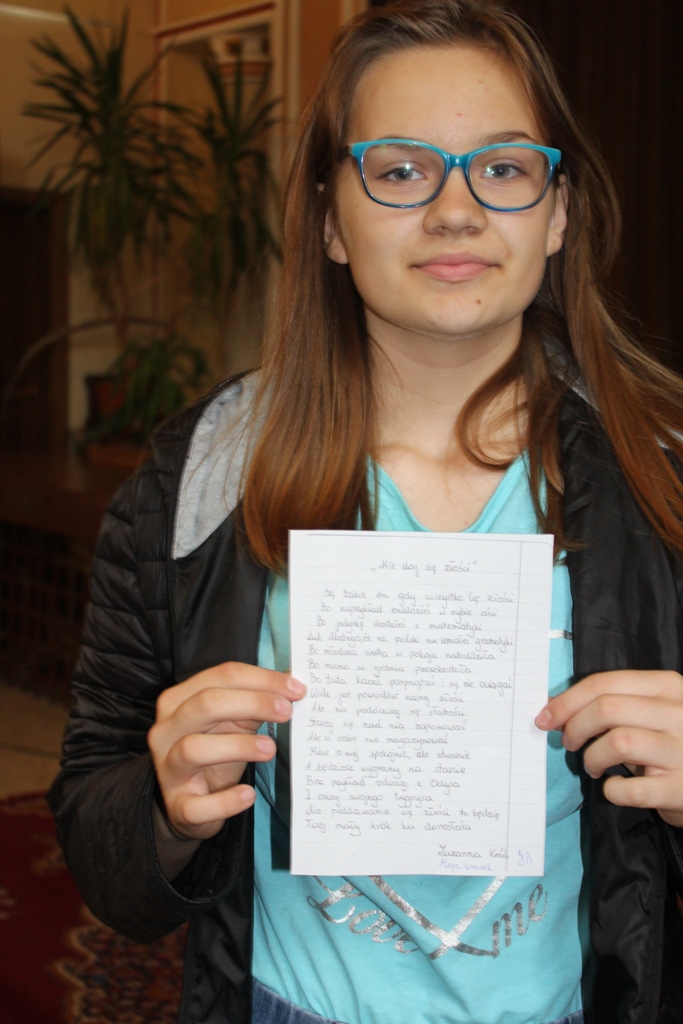 „Nie daj się złości"
Są takie dni gdy wszystko Cię złości
Bo naprzykład znalazłeś w rybie ości
Bo jedynkę dostałeś z matematyki
Lub dlatego, że na polski nie umiałeś gramatyki
Bo młodsza siostra w pokoju nabrudziła
Bo mama w graniu przeszkodziła
Bo tata kazał posprzątać i się nie ociągać
Wiele jest powodów naszej złości
Ale nie poddawaj się słabości
Staraj się nad nią zapanować
Ale w sobie nie magazynować
Mów o niej spokojnie, ale otwarcie
A będziesz wygrany na starcie
Bierz przykład odwagi z
I swojego Tygrysa
Nie poddawanie się złości to będzie
Twój mały krok ku dorosłości
Zuzanna Król
Maja
me